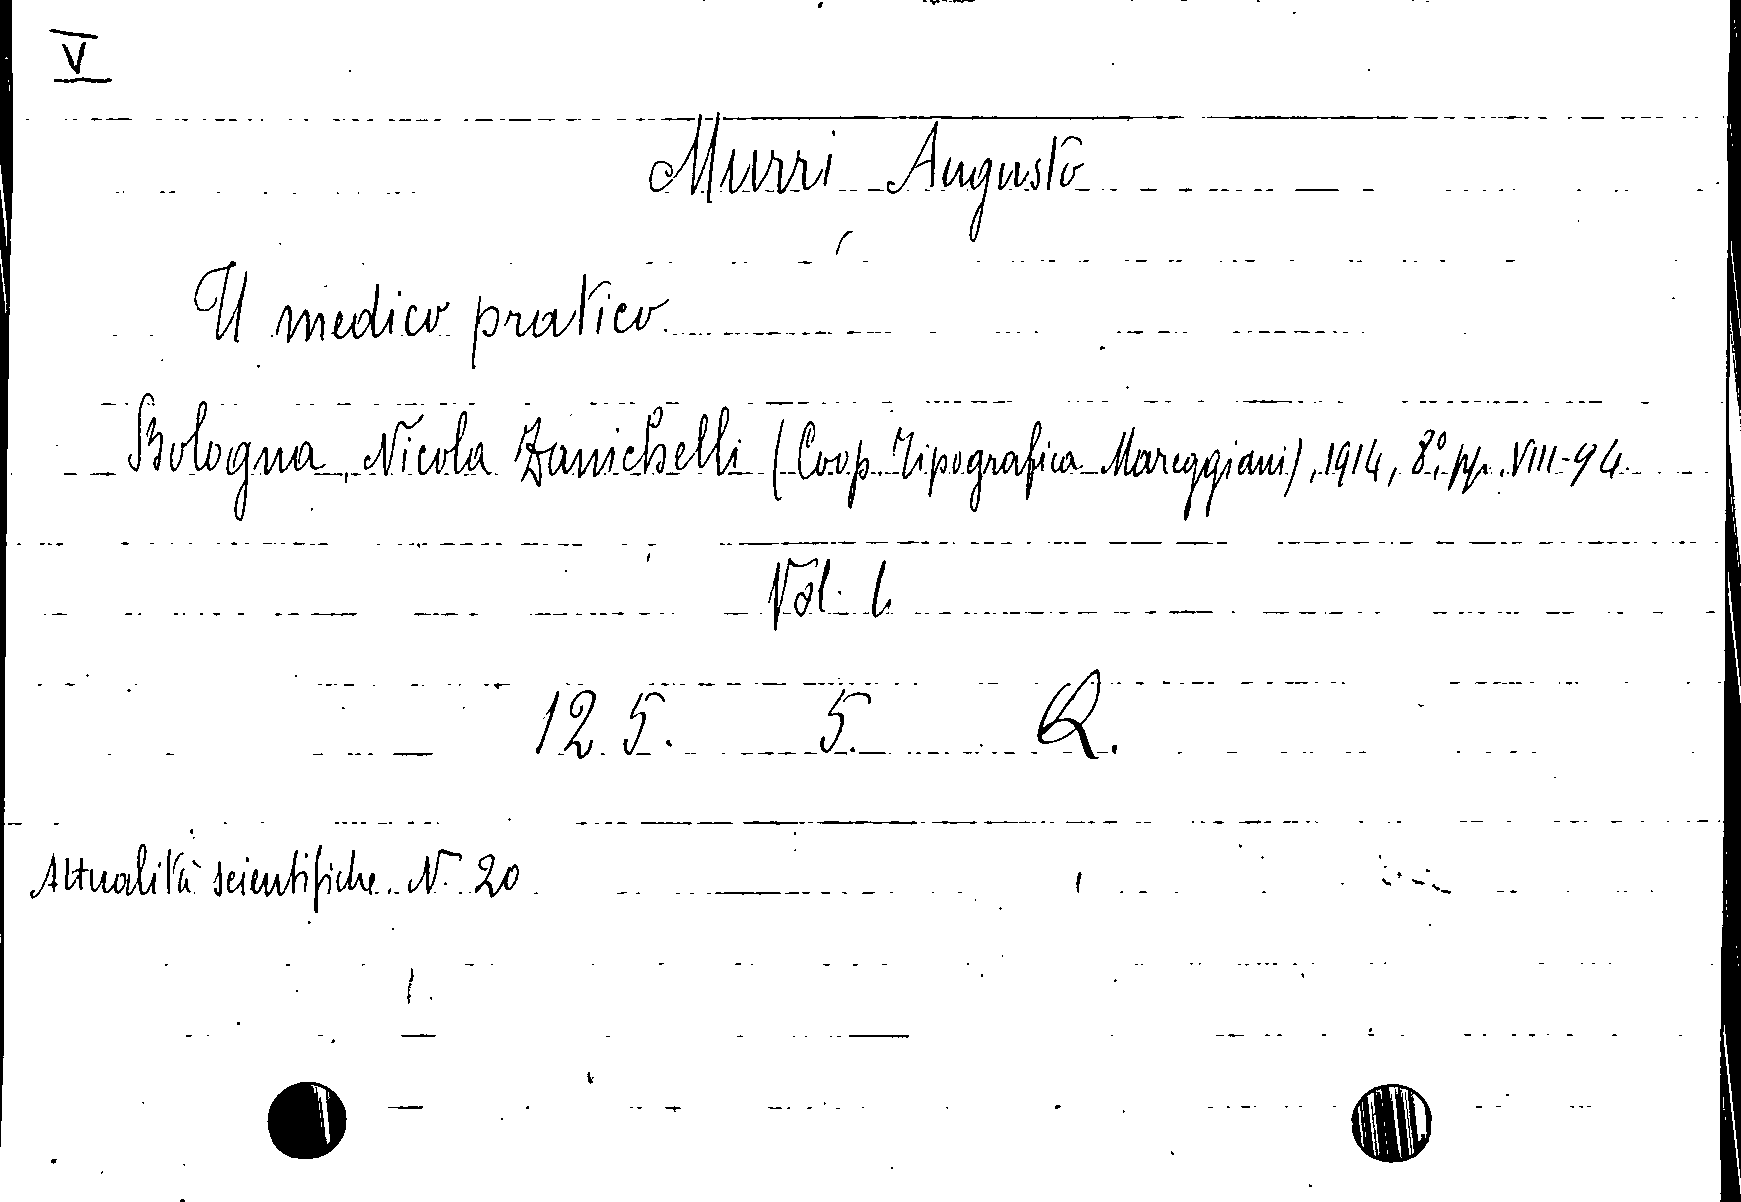 V
Murri Augusto
Il medico pratico.
Bologna, Nicola Zanichelli (Coop. Tipografica Mareggiani), 1914, 8°, pp. VIII-94.
Vol. 1.
125. 5. Q.
Attualità scientifiche. N. 20